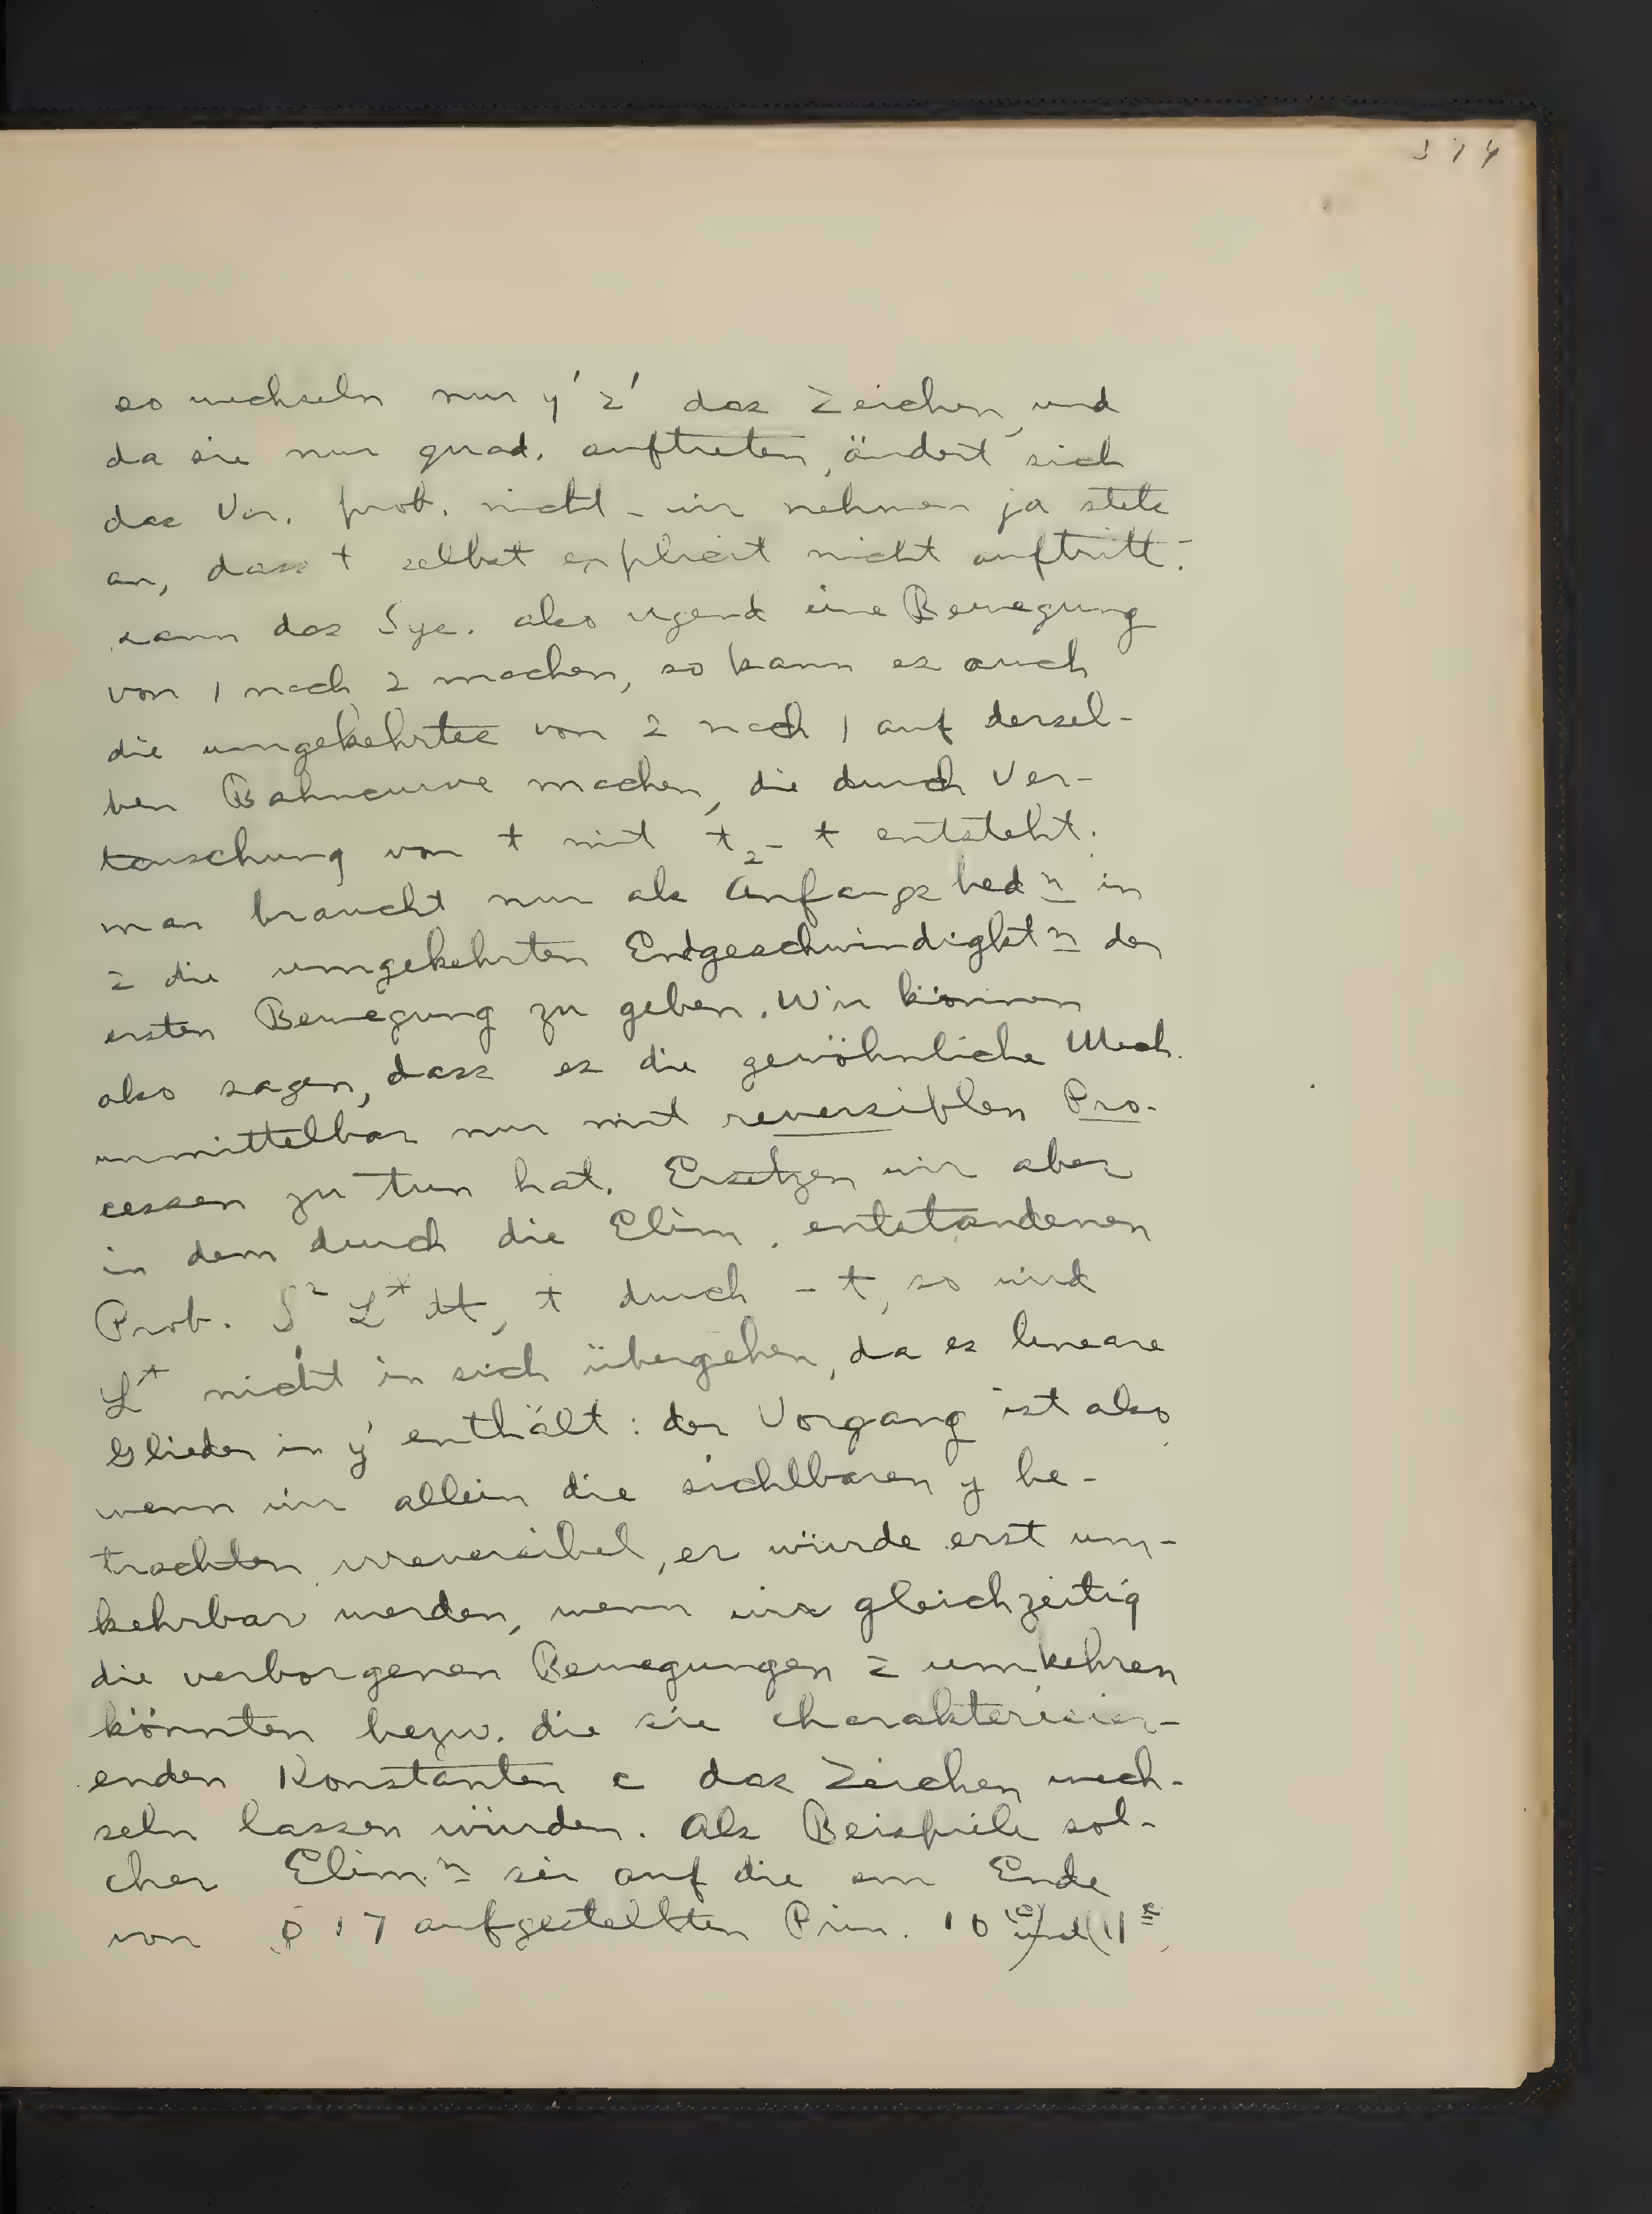 374
so wechseln nur y' z' das Zeichen, und
da sie nur quad. auftreten, ändert sich
das Var. prob. nicht - wir nehmen ja stets
an, dass t selbst explicit nicht auftritt -.
kann das Sys. also irgend eine Bewegung
von 1 nach 2 machen, so kann es auch
die umgekehrte von 2 nach 1 auf dersel-
ben Bahncurve machen, die durch Ver-
tauschung von t mit t₂ - t entsteht.
man braucht nur als Anfangsbedn in
2 die umgekehrten Endgeschwindigktn der
ersten Bewegung zu geben. Wir können
also sagen, dass es die gewöhnliche Mech.
unmittelbar nur mit reversiblen Pro-
cessen zu tun hat. Ersetzen wir aber
in dem durch die Elim. entstandenen
Prob. ∫₁² L* dt, t durch - t, so wird
L* nicht in sich übergehen, da es lineare
Glieder in y' enthält: der Vorgang ist also,
wenn wir allein die sichtbaren y be-
trachten, irreversibel, er würde erst um-
kehrbar werden, wenn wir gleichzeitig
die verborgenen Bewegungen z umkehren
könnten bezw. die sie charakterisier-
enden Konstanten c das Zeichen wech-
seln lassen würden. Als Beispiele sol-
cher Elim.n sei auf die am Ende
von § 17 aufgestellten Prin. 10) und (11